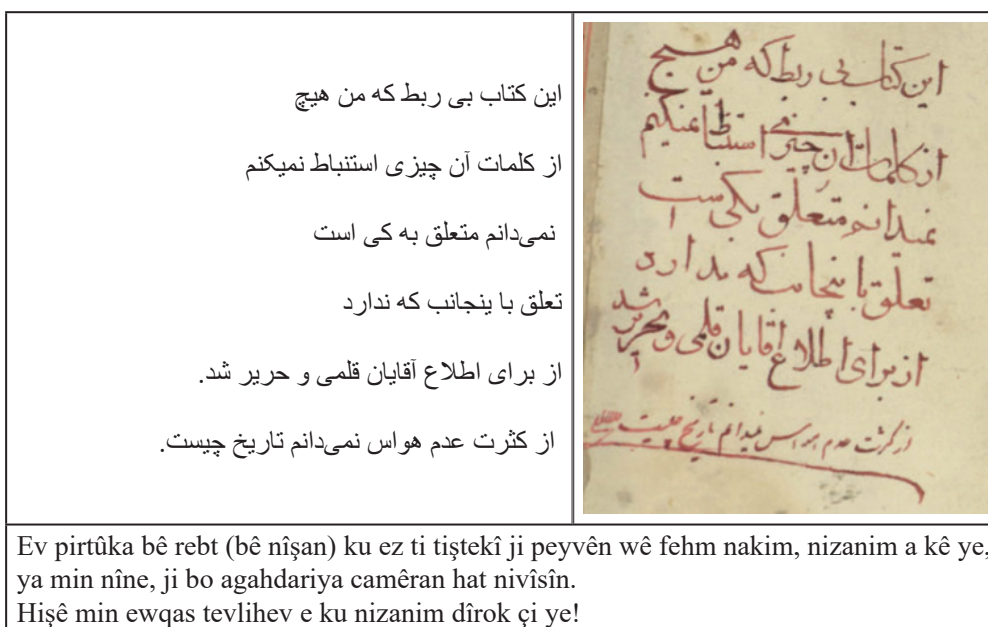 این کتاب بی ربط که من هیچ
از کلمات آن چیزی استنباط نمیکنم
نمی‌دانم متعلق به کی است
تعلق با ینجانب که ندارد
از برای اطلاع آقایان قلمی و حریر شد.
از کثرت عدم هواس نمی‌دانم تاریخ چیست.
این کتاب بی ربط که من هیچ
از کلمات ان چیزی استنباط نمیکنم
نمیدانم متعلق بکی است
تعلق باینجانب که ندارد
از برای اطلاع اقایان قلمی و تحریر شد
از کثرت عدم هواس نمیدانم تاریخ چیست
Ev pirtûka bê rebt (bê nîşan) ku ez ti tiştekî ji peyvên wê fehm nakim, nizanim a kê ye,
ya min nîne, ji bo agahdariya camêran hat nivîsîn.
Hişê min ewqas tevlihev e ku nizanim dîrok çi ye!